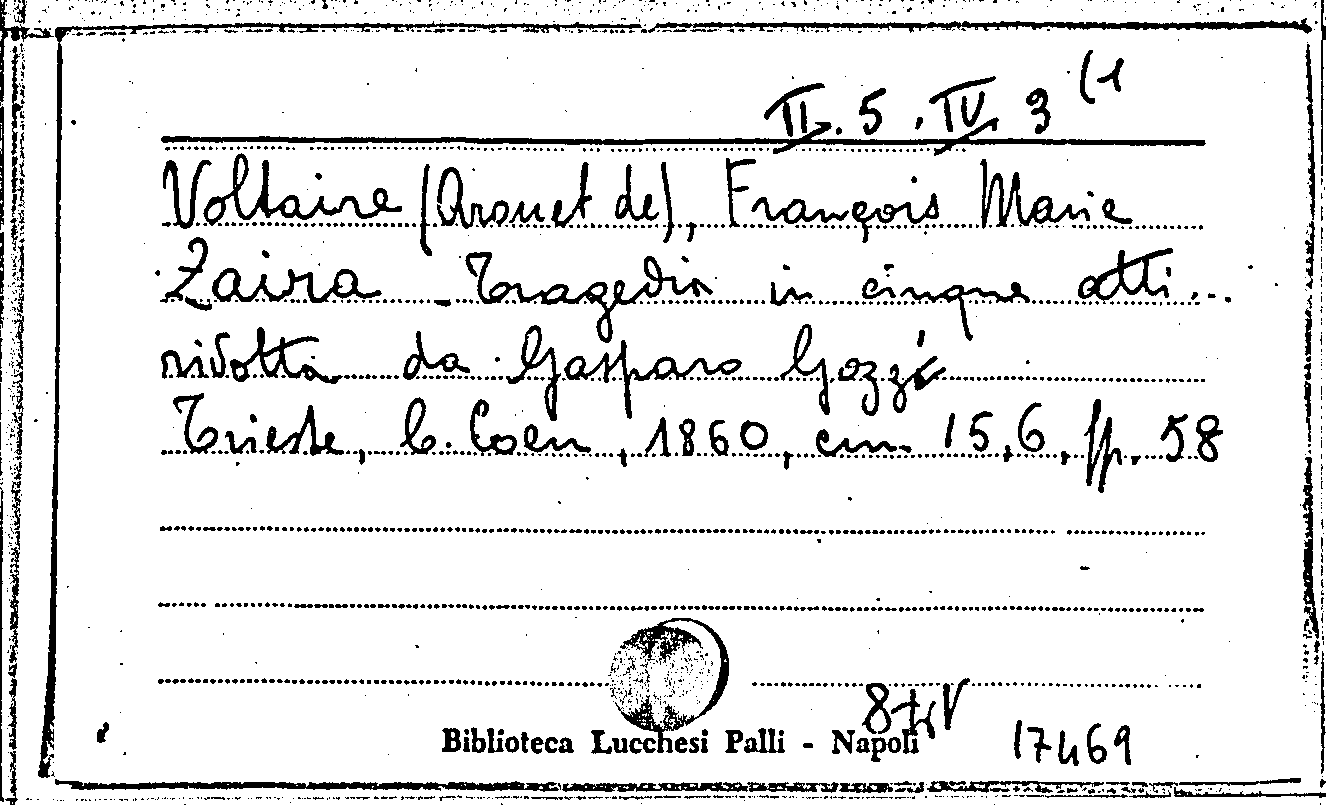 II. 5. IV. 3 (1
Voltaire (Arouet de), François Marie
Zaira - Tragedia in cinque atti...
ridotta da Gasparo Gozzi
Trieste, C. Coen, 1860, cm. 15,6, pp. 58
Biblioteca Lucchesi Palli - Napoli
17469